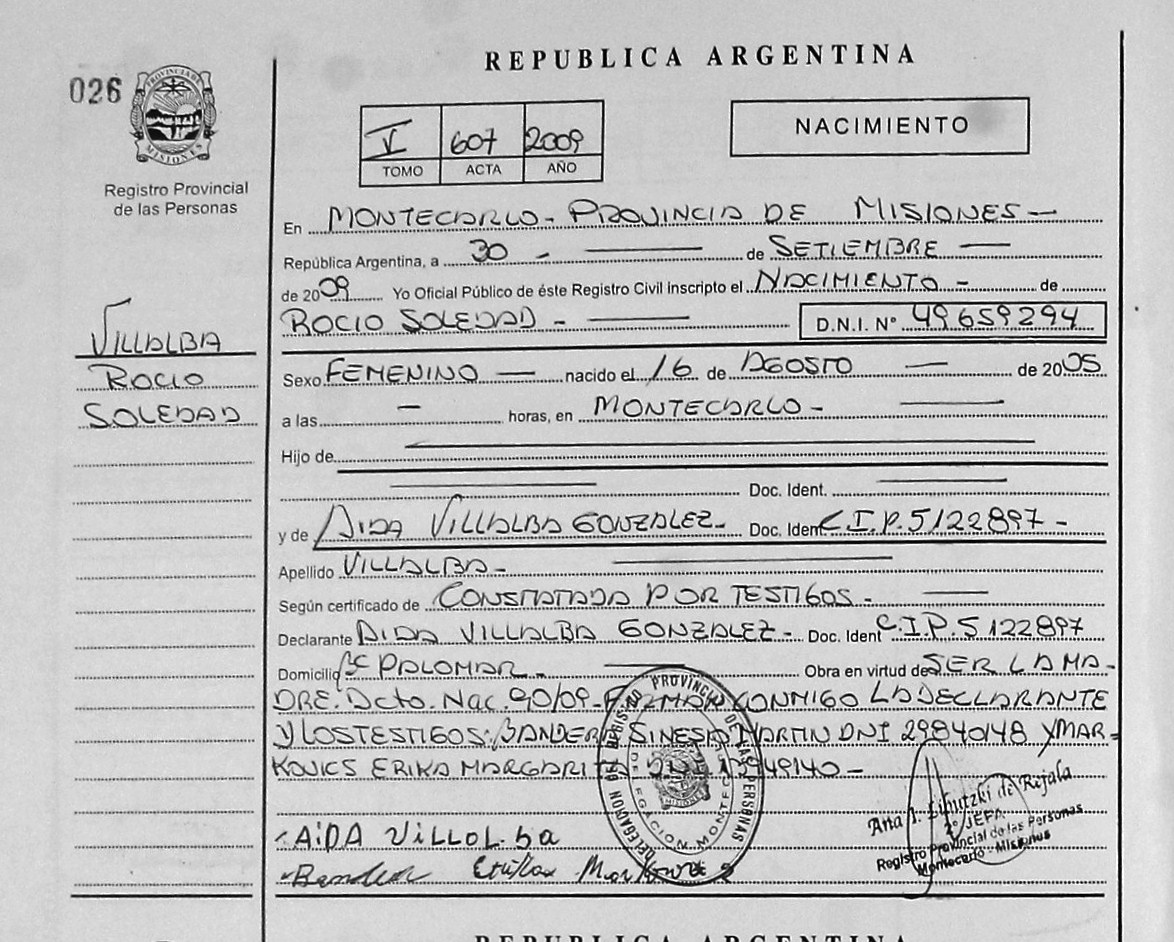 REPUBLICA ARGENTINA
026
PROVINCIA DE MISIONES
Registro Provincial
de las Personas
V 607 2009
TOMO ACTA AÑO
NACIMIENTO
En MONTECARLO - PROVINCIA DE MISIONES -
República Argentina, a 30 - de SETIEMBRE
de 2009 Yo Oficial Público de éste Registro Civil inscripto el NACIMIENTO - de
ROCIO SOLEDAD - D.N.I. N° 49659294
VILLALBA
ROCIO
SOLEDAD
Sexo FEMENINO - nacido el 16 de AGOSTO - de 2005
a las - horas, en MONTECARLO -
Hijo de
Doc. Ident.
y de AIDA VILLALBA GONZALEZ - Doc. Ident. C.I.P. 5122897 -
Apellido VILLALBA -
Según certificado de CONSTATADA POR TESTIGOS -
Declarante AIDA VILLALBA GONZALEZ - Doc. Ident C.I.P. 5122897
Domicilio Bº PALOMAR - Obra en virtud de SER LA MA-
DRE. Dcto. Nac. 90/09 - FIRMAN CONMIGO LA DECLARANTE
Y LOS TESTIGOS: BANDERA SINESIO MARTIN DNI 29840148 Y MAR-
KOVICS ERIKA MARGARITA 49140 -
AIDA VILLOLBA
DELEGACION DEL REGISTRO PROVINCIAL DE LAS PERSONAS
Ana I. de Rejala
2° JEFA
Registro Provincial de las Personas
Montecarlo - Misiones
REPUBLICA ARGENTINA